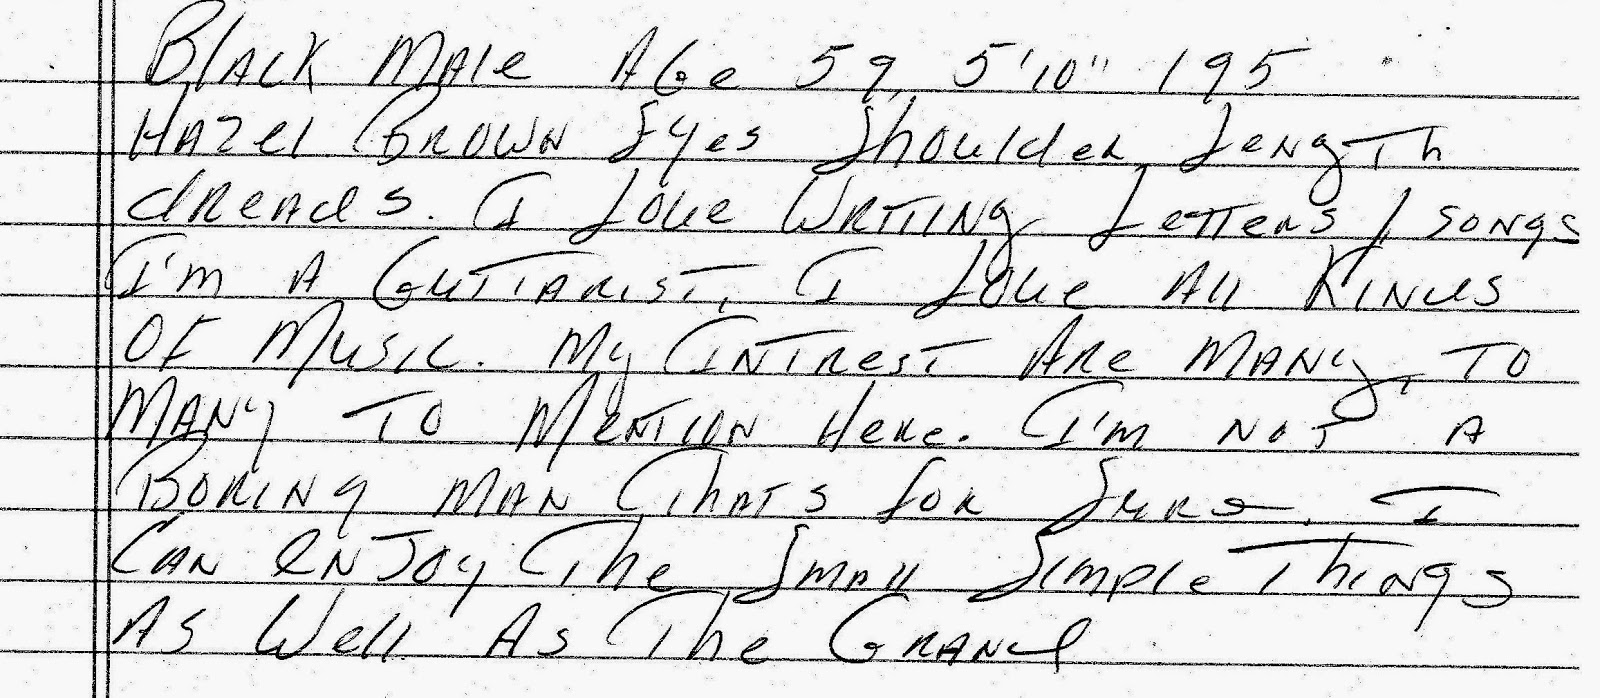 Black Male Age 59, 5'10" 195
Hazel Brown Eyes Shoulder Length
dreads. I Love Writing Letters / songs
I'm A Guitiarist, I Love All Kinds
Of Music. My Intrest Are Many, To
Many To Mention Here. I'm Not A
Boring Man Thats for Sure. I
Can enJoy The Small Simple Things
As Well As The Grand